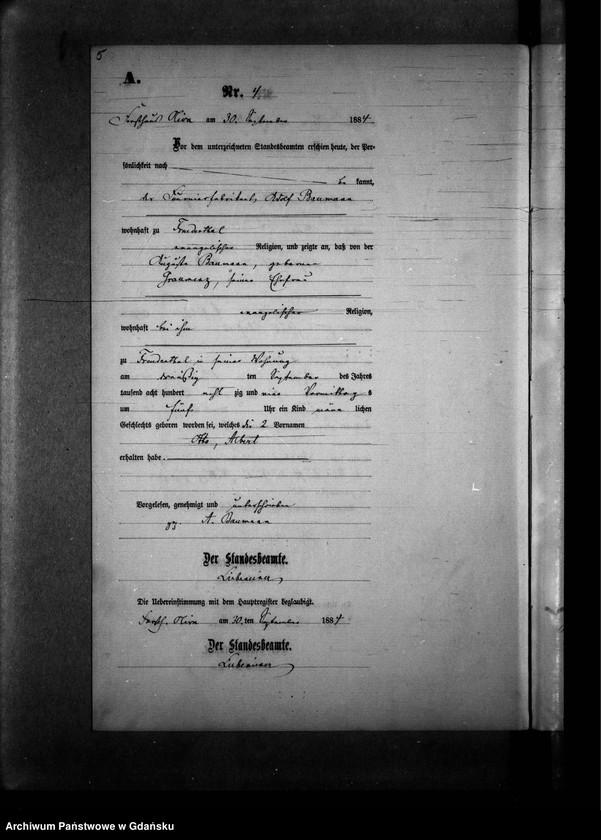 5
A.
Nr. 4
Forsthaus Oliva am 30. September 1884
Vor dem unterzeichneten Standesbeamten erschien heute, der Per-
sönlichkeit nach
be kannt,
der Adolf Baumann
wohnhaft zu Freudenthal
evangelischer Religion, und zeigte an, daß von der
Auguste Baumann, geborenen
seiner Ehefrau
evangelischer Religion,
wohnhaft bei ihm
zu Freudenthal in seiner Wohnung
am dreißig ten September des Jahres
tausend acht hundert acht zig und vier Vormittags
um fünf Uhr ein Kind männ lichen
Geschlechts geboren worden sei, welches die 2 Vornamen
Otto, Albert
erhalten habe.
Vorgelesen, genehmigt und unterschrieben
gz. A. Baumann
Der Standesbeamte.
Die Uebereinstimmung mit dem Hauptregister beglaubigt.
Forsth. Oliva am 30. ten September 1884
Der Standesbeamte.
Archiwum Państwowe w Gdańsku